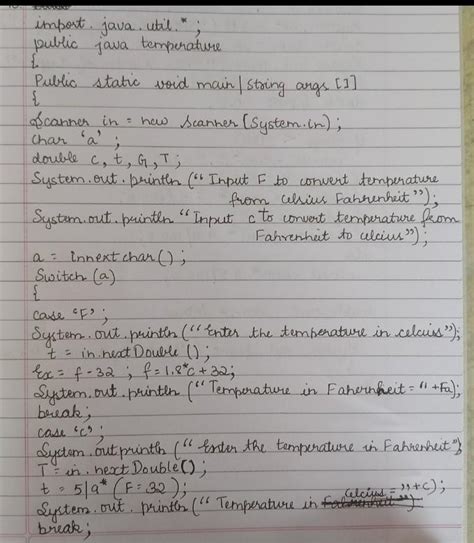 import. java. util. *;
public java temperature
{
Public static void main | String args [])
{
Scanner in = new Scanner (System.in);
char 'a' ;
double c, t, G, T;
System.out.println ("Input F to convert temperature
from celsius Fahrenheit");
System.out.println "Input c to convert temperature from
Fahrenheit to celcius");
a = in next char();
Switch (a)
{
case 'F';
System.out.println ("Enter the temperature in celcius");
t = in.next Double ();
Ex = f-32 ; f = 1.8*c + 32;
System.out.println ("Temperature in Fahernheit = " +Fa);
break;
case 'c';
System.out println ("Enter the temperature in Fahrenheit");
T = in. next Double();
t = 5|a* (F = 32);
System.out. println ("Temperature in celcius = "+c);
break;